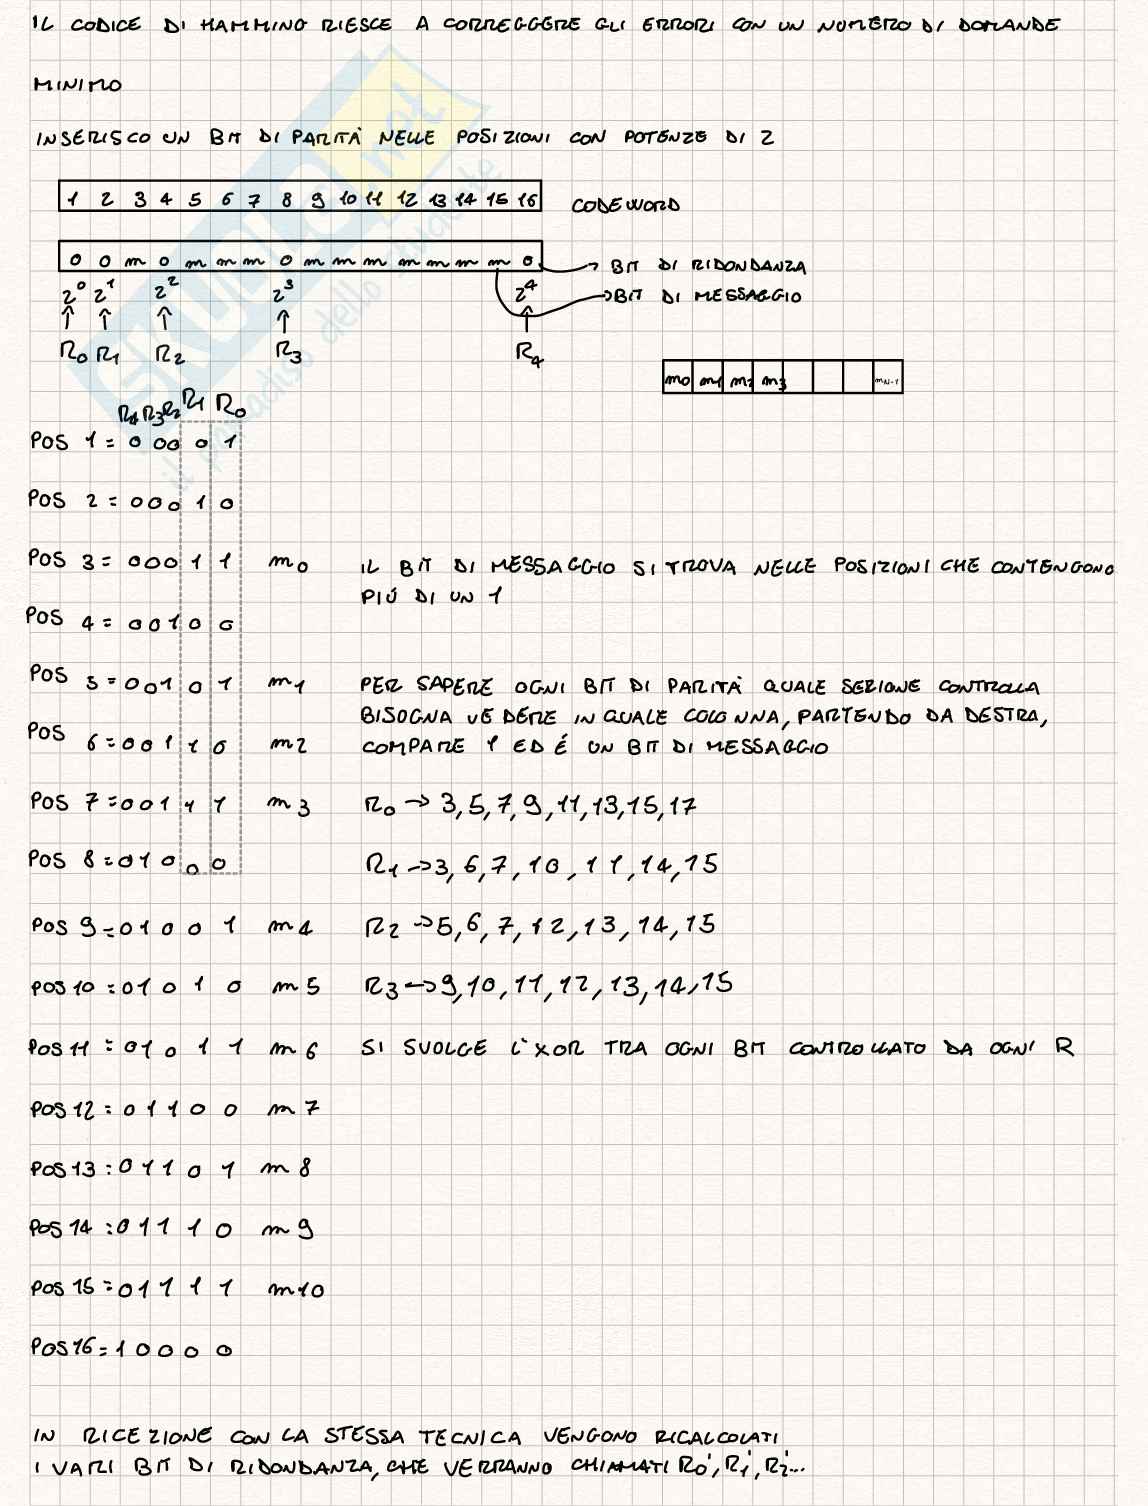 IL CODICE DI HAMMING RIESCE A CORREGGERE GLI ERRORI CON UN NUMERO DI DOMANDE
MINIMO
INSERISCO UN BIT DI PARITÀ NELLE POSIZIONI CON POTENZE DI 2
1 2 3 4 5 6 7 8 9 10 11 12 13 14 15 16 CODEWORD
0 0 m 0 m m m 0 m m m m m m m 0 → BIT DI RIDONDANZA
2⁰ 2¹ 2² 2³ 2⁴ → BIT DI MESSAGGIO
↑ ↑ ↑ ↑ ↑
R₀ R₁ R₂ R₃ R₄
m0 m1 m2 m3 mN-1
R₄ R₃ R₂ R₁ R₀
POS 1 = 0 0 0 0 1
POS 2 = 0 0 0 1 0
POS 3 = 0 0 0 1 1 m0 IL BIT DI MESSAGGIO SI TROVA NELLE POSIZIONI CHE CONTENGONO
PIÚ DI UN 1
POS 4 = 0 0 1 0 0
POS 5 = 0 0 1 0 1 m1 PER SAPERE OGNI BIT DI PARITÀ QUALE SEZIONE CONTROLLA
BISOGNA VEDERE IN QUALE COLONNA, PARTENDO DA DESTRA,
POS 6 = 0 0 1 1 0 m2 COMPARE 1 ED É UN BIT DI MESSAGGIO
POS 7 = 0 0 1 1 1 m3 R₀ → 3, 5, 7, 9, 11, 13, 15, 17
POS 8 = 0 1 0 0 0 R₁ → 3, 6, 7, 10, 11, 14, 15
POS 9 = 0 1 0 0 1 m4 R₂ → 5, 6, 7, 12, 13, 14, 15
POS 10 = 0 1 0 1 0 m5 R₃ → 9, 10, 11, 12, 13, 14, 15
POS 11 = 0 1 0 1 1 m6 SI SVOLGE L'XOR TRA OGNI BIT CONTROLLATO DA OGNI R
POS 12 = 0 1 1 0 0 m7
POS 13 = 0 1 1 0 1 m8
POS 14 = 0 1 1 1 0 m9
POS 15 = 0 1 1 1 1 m10
POS 16 = 1 0 0 0 0
IN RICEZIONE CON LA STESSA TECNICA VENGONO RICALCOLATI
I VARI BIT DI RIDONDANZA, CHE VERRANNO CHIAMATI R₀', R₁', R₂'...
SKUOLA.net
il paradiso dello studente